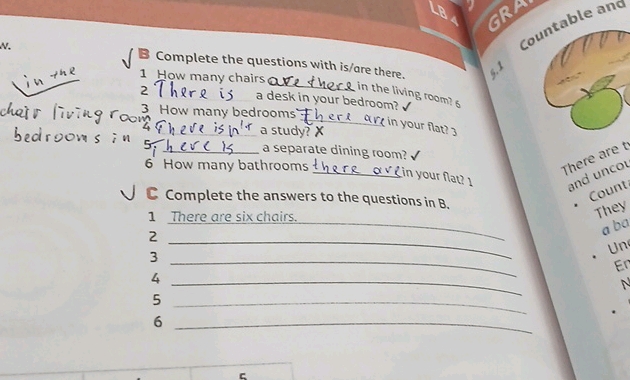 LB 4
GRA
w.
B Complete the questions with is/are there.
1 How many chairs are there in the living room? 6
2 There is a desk in your bedroom? ✓
3 How many bedrooms there are in your flat? 3
4 There isn't a study? ✗
5 There is a separate dining room? ✓
6 How many bathrooms there are in your flat? 1
C Complete the answers to the questions in B.
1 There are six chairs.
2
3
4
5
6
in the
chair living room
bedrooms in
5.1 Countable and
There are
and uncou
• Count
They
a ba
• Un
5